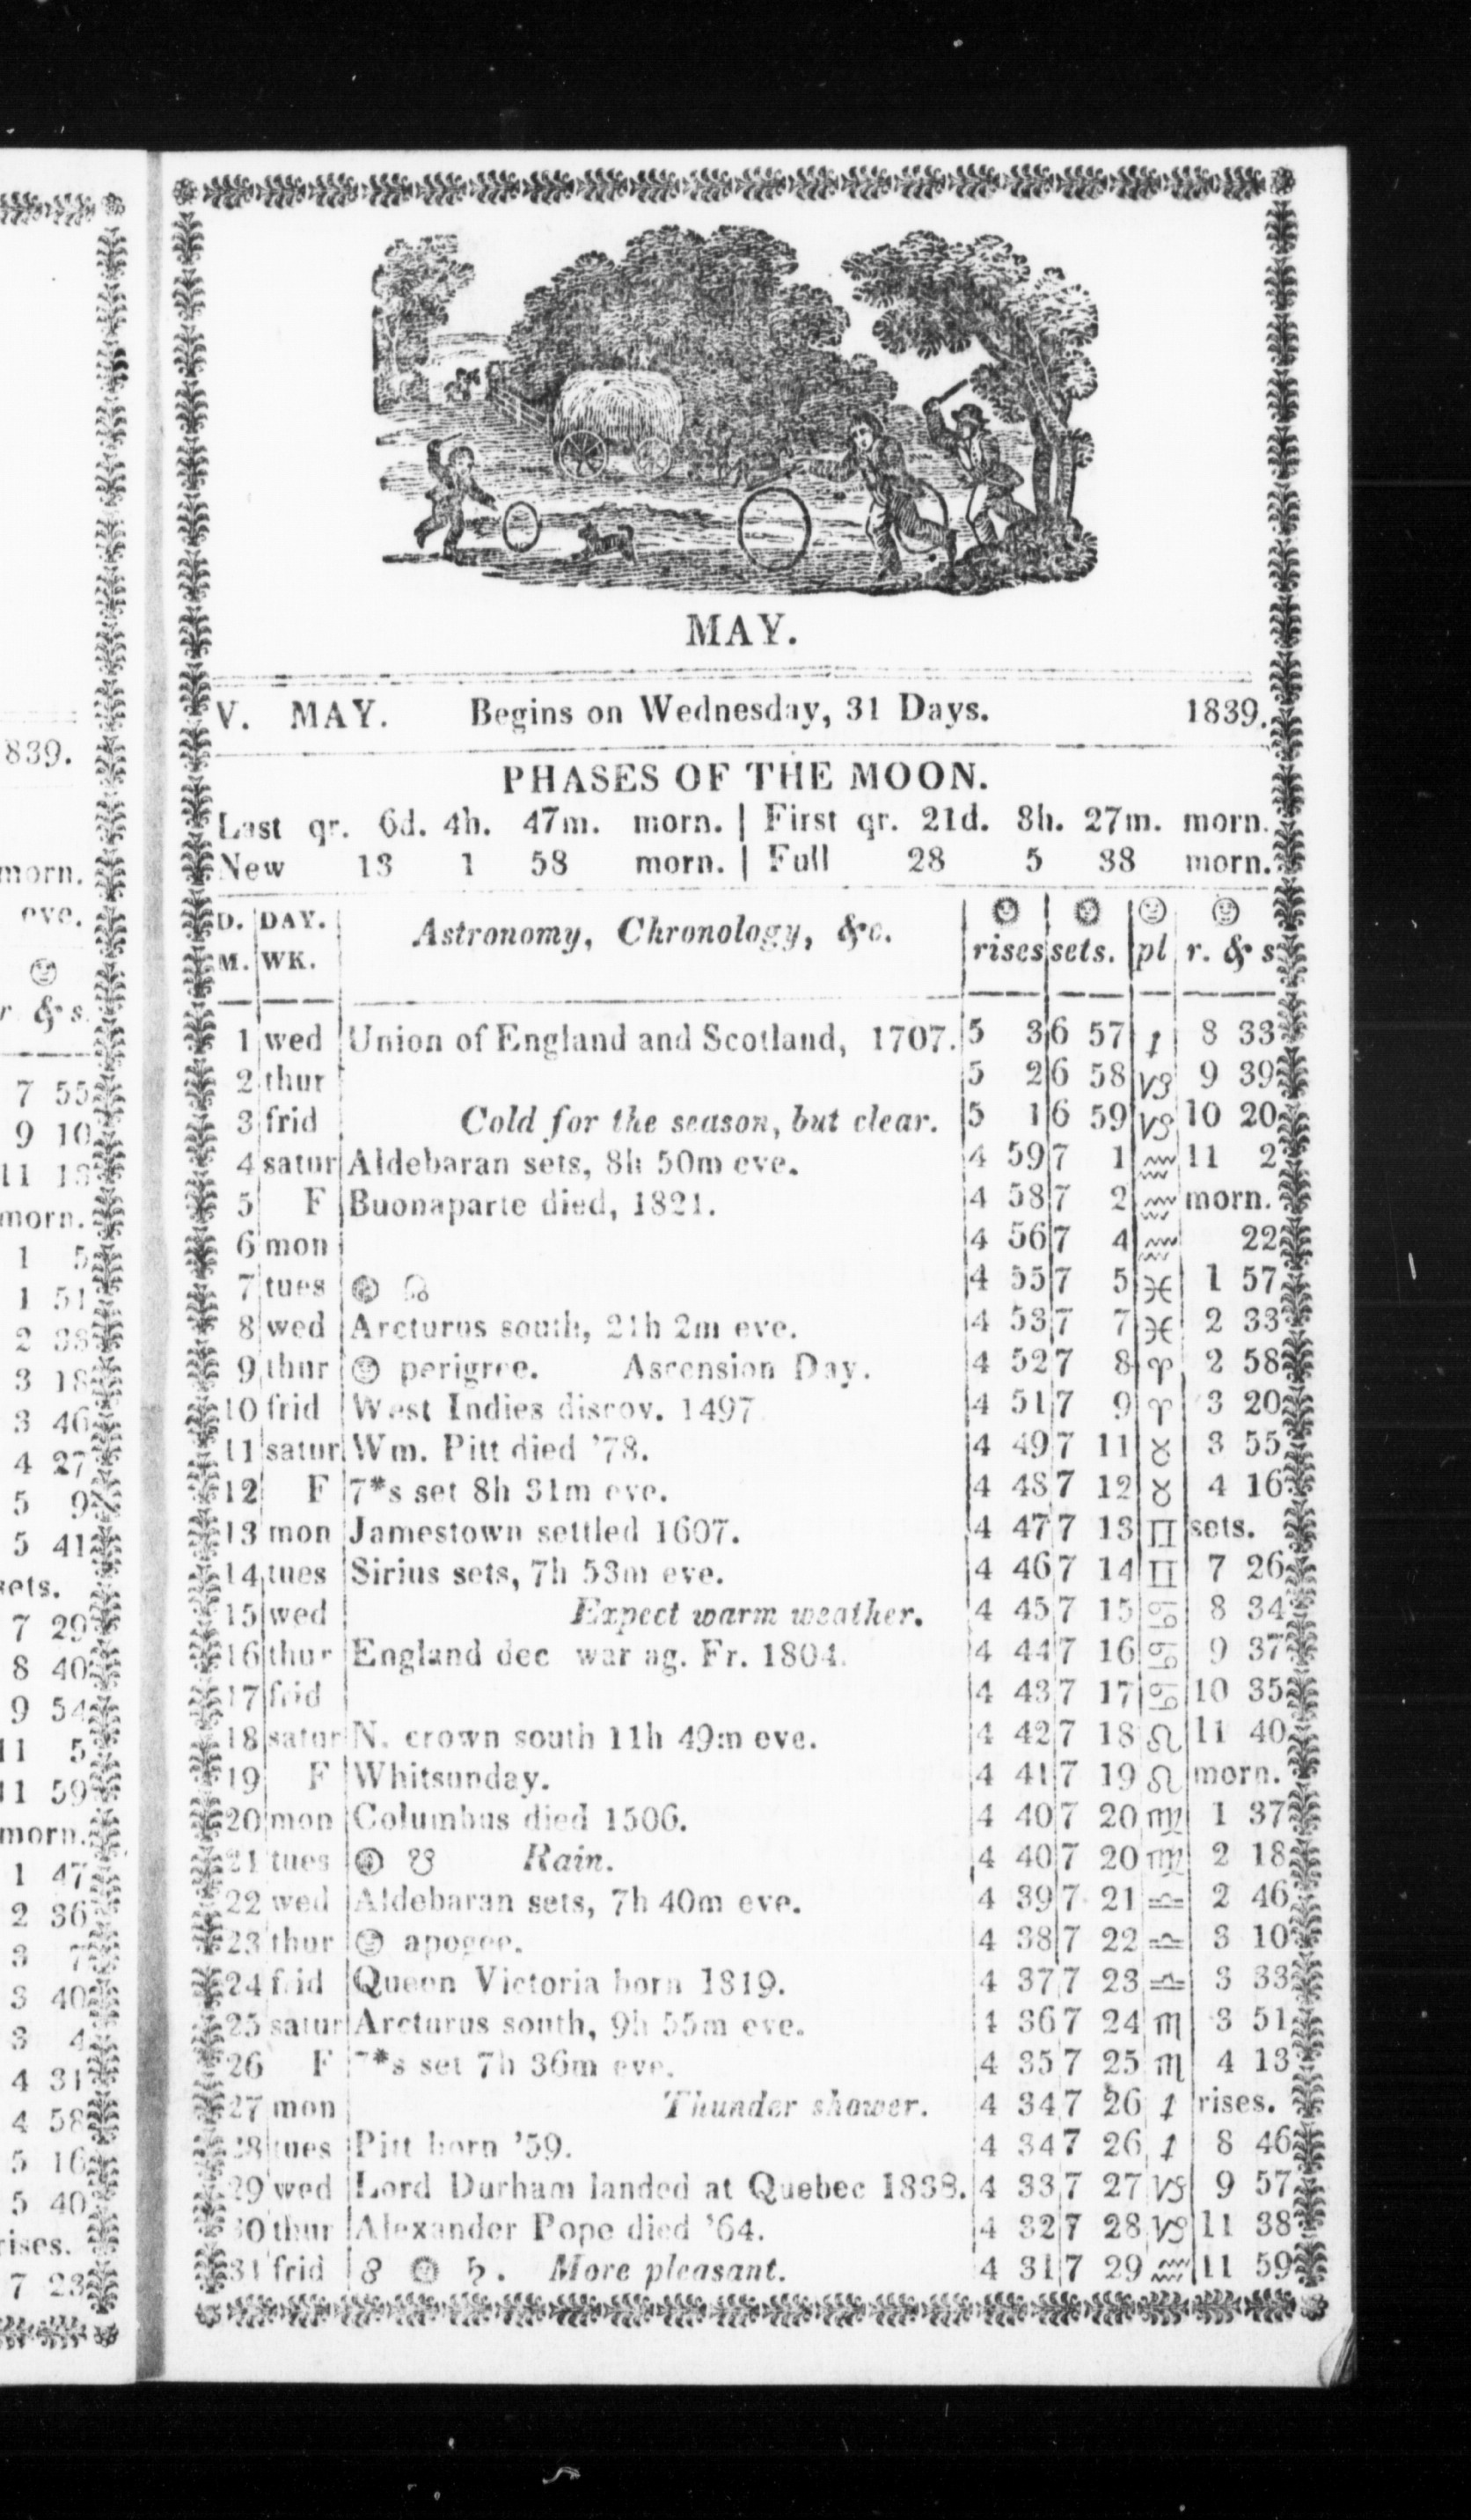 839.
morn.
eve.
r. & s.
7 55
9 10
11 13
morn.
1 5
1 51
2 38
3 18
3 46
4 27
5 9
5 41
sets.
7 29
8 40
9 54
11 5
11 59
morn.
1 47
2 36
3 7
3 40
3 4
4 31
4 58
5 16
5 40
rises.
7 23
MAY.
V. MAY. Begins on Wednesday, 31 Days. 1839.
PHASES OF THE MOON.
Last qr. 6d. 4h. 47m. morn. | First qr. 21d. 8h. 27m. morn.
New 13 1 58 morn. | Full 28 5 38 morn.
D. DAY. Astronomy, Chronology, &c. ☉ ☉ ☽ ☽
M. WK. rises sets. pl r. & s
1 wed Union of England and Scotland, 1707. 5 3 6 57 ♐ 8 33
2 thur 5 2 6 58 ♑ 9 39
3 frid Cold for the season, but clear. 5 1 6 59 ♑ 10 20
4 satur Aldebaran sets, 8h 50m eve. 4 59 7 1 ♒ 11 2
5 F Buonaparte died, 1821. 4 58 7 2 ♒ morn.
6 mon 4 56 7 4 ♒ 22
7 tues ☽ ☊ 4 55 7 5 ♓ 1 57
8 wed Arcturus south, 21h 2m eve. 4 53 7 7 ♓ 2 33
9 thur ☽ perigree. Ascension Day. 4 52 7 8 ♈ 2 58
10 frid West Indies discov. 1497 4 51 7 9 ♈ 3 20
11 satur Wm. Pitt died '78. 4 49 7 11 ♉ 3 55
12 F 7*s set 8h 31m eve. 4 48 7 12 ♉ 4 16
13 mon Jamestown settled 1607. 4 47 7 13 ♊ sets.
14 tues Sirius sets, 7h 53m eve. 4 46 7 14 ♊ 7 26
15 wed Expect warm weather. 4 45 7 15 ♋ 8 34
16 thur England dec war ag. Fr. 1804. 4 44 7 16 ♋ 9 37
17 frid 4 43 7 17 ♋ 10 35
18 satur N. crown south 11h 49m eve. 4 42 7 18 ♌ 11 40
19 F Whitsunday. 4 41 7 19 ♌ morn.
20 mon Columbus died 1506. 4 40 7 20 ♍ 1 37
21 tues ☽ ☋ Rain. 4 40 7 20 ♍ 2 18
22 wed Aldebaran sets, 7h 40m eve. 4 39 7 21 ♎ 2 46
23 thur ☽ apogee. 4 38 7 22 ♎ 3 10
24 frid Queen Victoria born 1819. 4 37 7 23 ♎ 3 33
25 satur Arcturus south, 9h 55m eve. 4 36 7 24 ♏ 3 51
26 F 7*s set 7h 36m eve. 4 35 7 25 ♏ 4 13
27 mon Thunder shower. 4 34 7 26 ♐ rises.
28 tues Pitt born '59. 4 34 7 26 ♐ 8 46
29 wed Lord Durham landed at Quebec 1838. 4 33 7 27 ♑ 9 57
30 thur Alexander Pope died '64. 4 32 7 28 ♑ 11 38
31 frid ☍ ☉ ♄. More pleasant. 4 31 7 29 ♒ 11 59